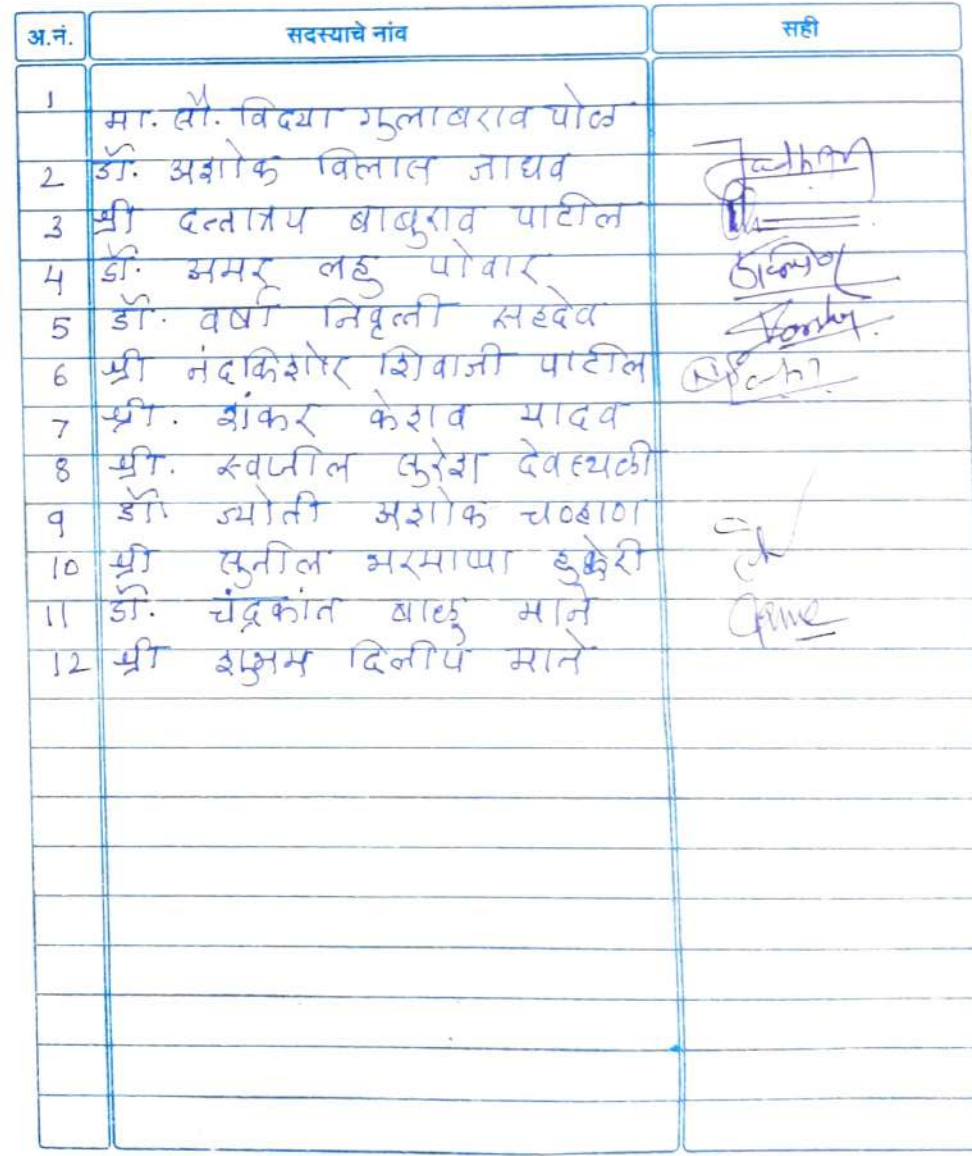 अ.नं. सदस्याचे नांव सही
1
मा. सौ. विदया गुलाबराव पोळ
2 डॉ. अशोक विलास जाधव
3 श्री दत्तात्रय बाबुराव पाटील
4 डॉ. अमर लहु पोवार
5 डॉ. वर्षा निवृत्ती सहदेव
6 श्री नंदकिशोर शिवाजी पाटील
7 श्री. शंकर केशव यादव
8 श्री. स्वप्नील सुरेश देवस्थळी
9 डॉ ज्योती अशोक चव्हाण
10 श्री सुनील भरमाप्पा हुक्केरी
11 डॉ. चंद्रकांत बाळु माने
12 श्री शुभम दिलीप माने